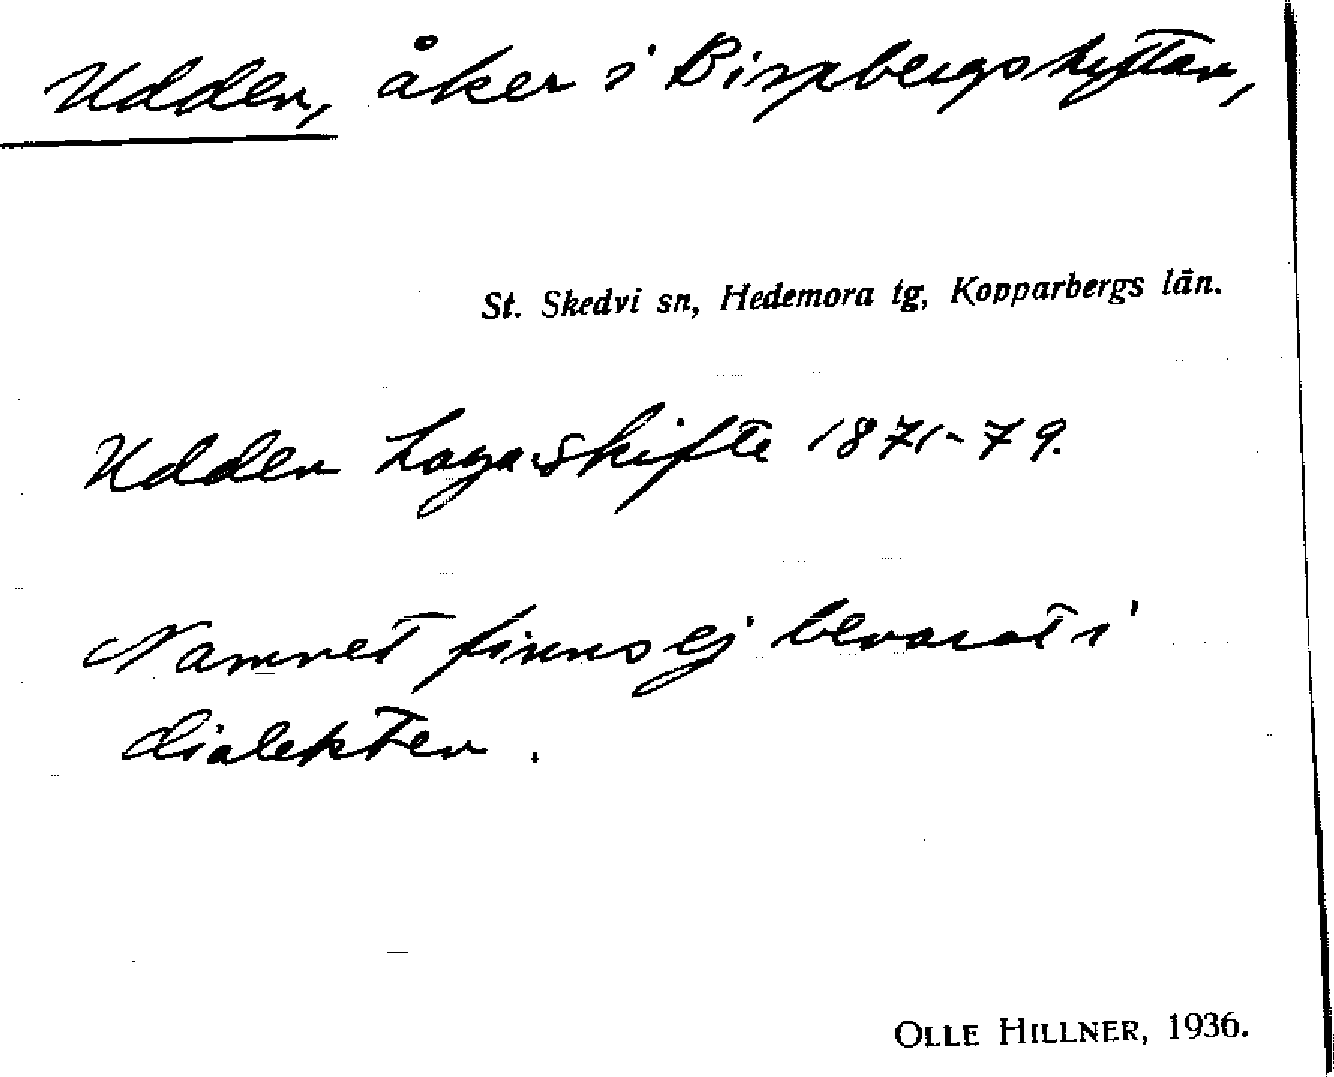 Udden, åker i Bispbergshyttan,
St. Skedvi sn, Hedemora tg, Kopparbergs län.
Udden Laga skifte 1871-79.
Namnet finns ej bevarat i
dialekten.
OLLE HILLNER, 1936.